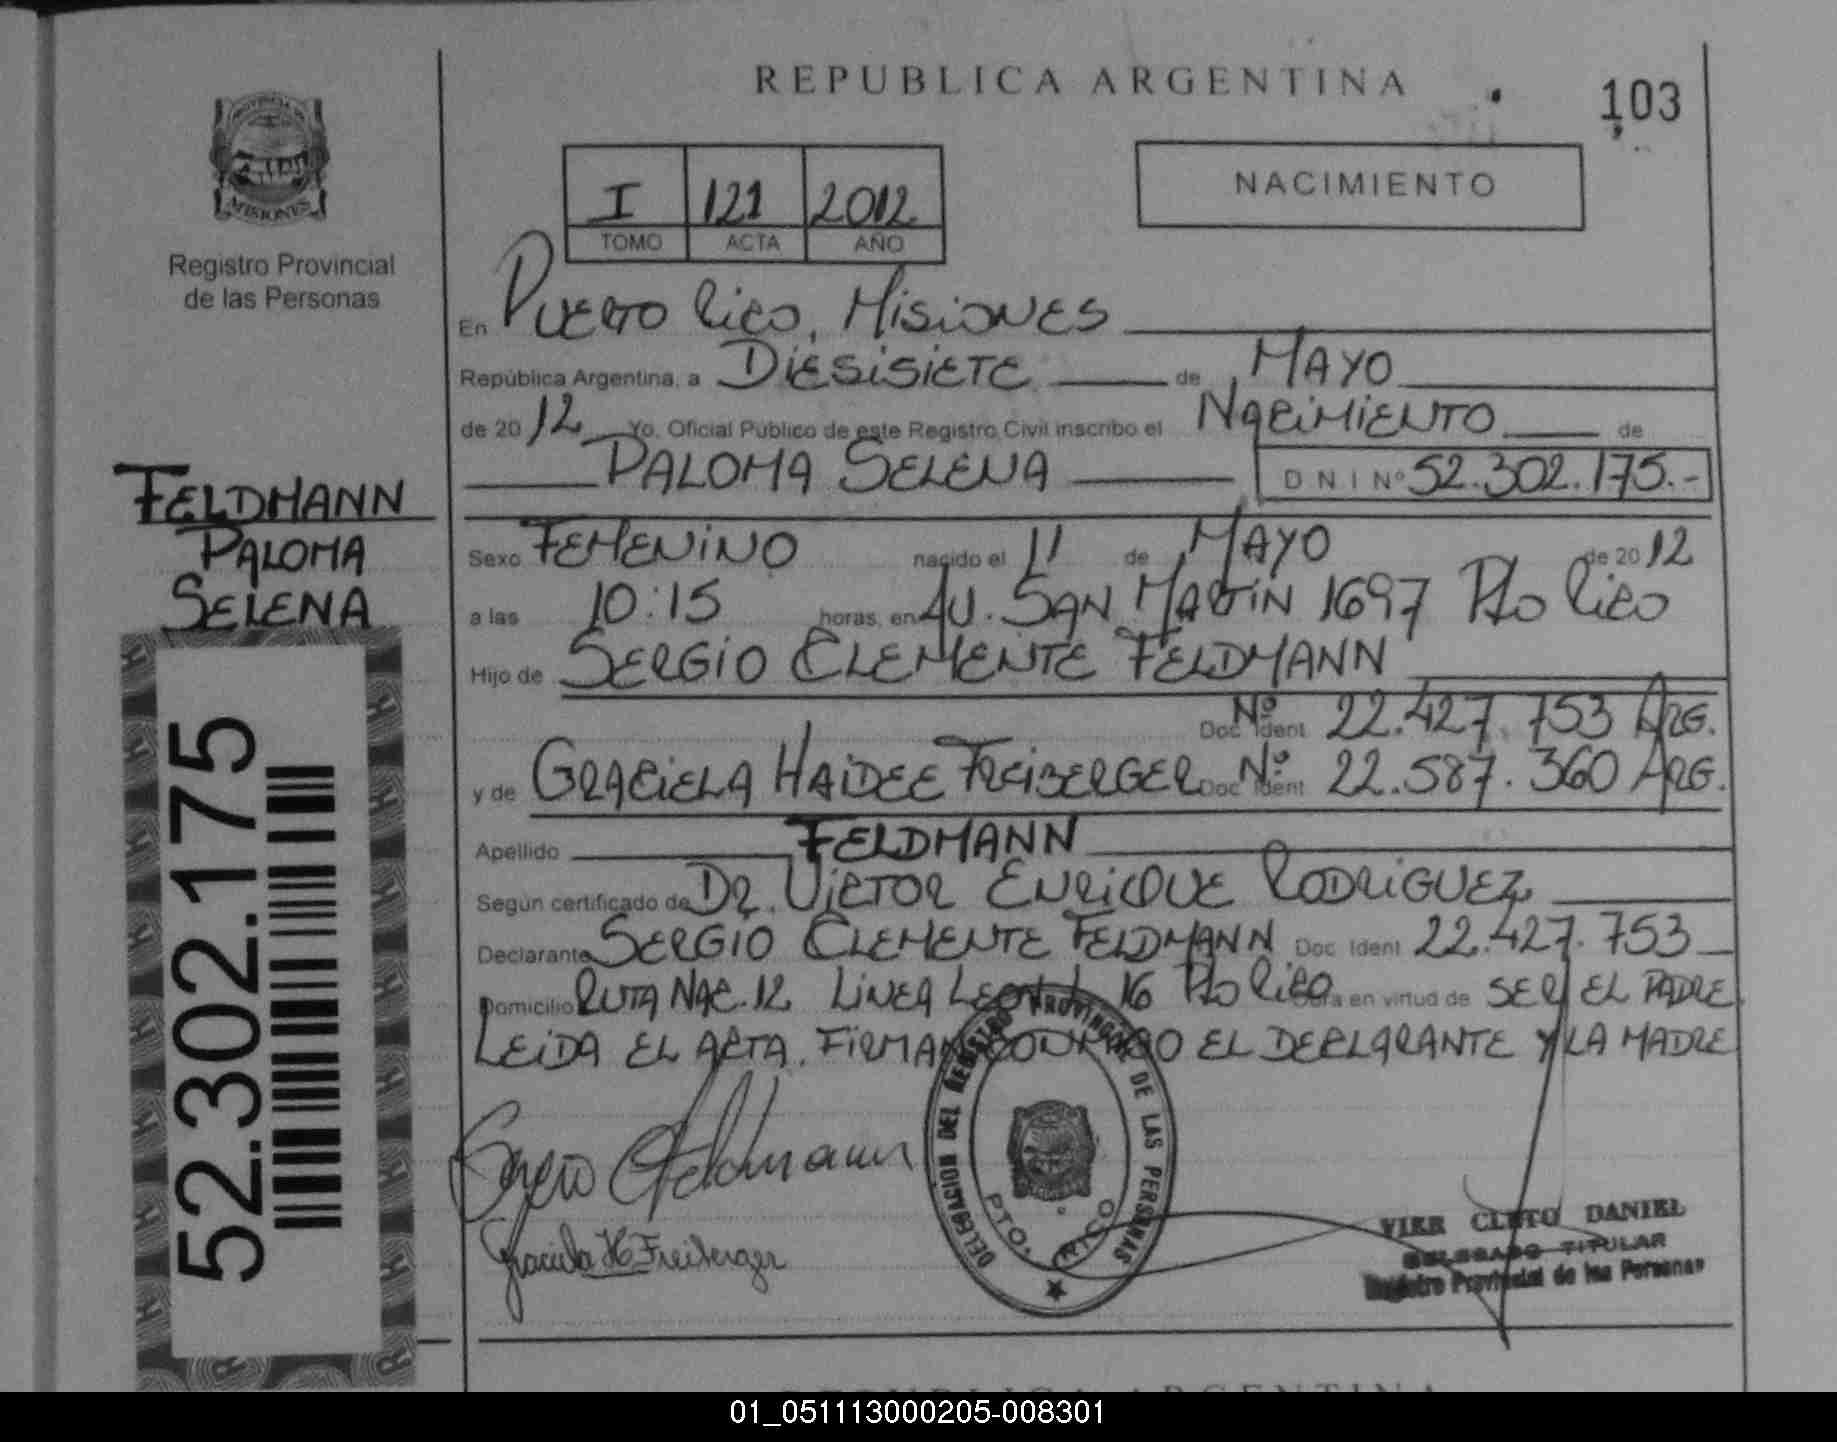 REPUBLICA ARGENTINA
103
PROVINCIA DE
MISIONES
Registro Provincial
de las Personas
I 121 2012
TOMO ACTA AÑO
NACIMIENTO
En Puerto Rico, Misiones
República Argentina, a Diesisiete de Mayo
de 2012 Yo, Oficial Público de este Registro Civil inscribo el Nacimiento de
Paloma Selena DNI Nº 52.302.175.-
FELDMANN
PALOMA
SELENA
Sexo Femenino nacido el 11 de Mayo de 2012
a las 10:15 horas, en Av. San Martin 1697 Pto Rico
Hijo de Sergio Clemente Feldmann
Doc. Ident Nº 22.427.753 Arg.
y de Graciela Haidee Freiberger Doc. Ident Nº 22.587.360 Arg.
Apellido FELDMANN
Según certificado de Dr. Victor Enrique Rodriguez
Declarante Sergio Clemente Feldmann Doc Ident 22.427.753
Domicilio Ruta Nac. 12 Linea Leon 16 Pto Rico en virtud de ser el padre.
Leida el acta. Firman conmigo el declarante y la madre
Sergio C Feldmann
Graciela H Freiberger
DELEGACION DEL REGISTRO PROVINCIAL DE LAS PERSONAS
PTO. RICO
VIER CLETO DANIEL
DELEGADO TITULAR
Registro Provincial de las Personas
52.302.175
REPUBLICA ARGENTINA
01_051113000205-008301